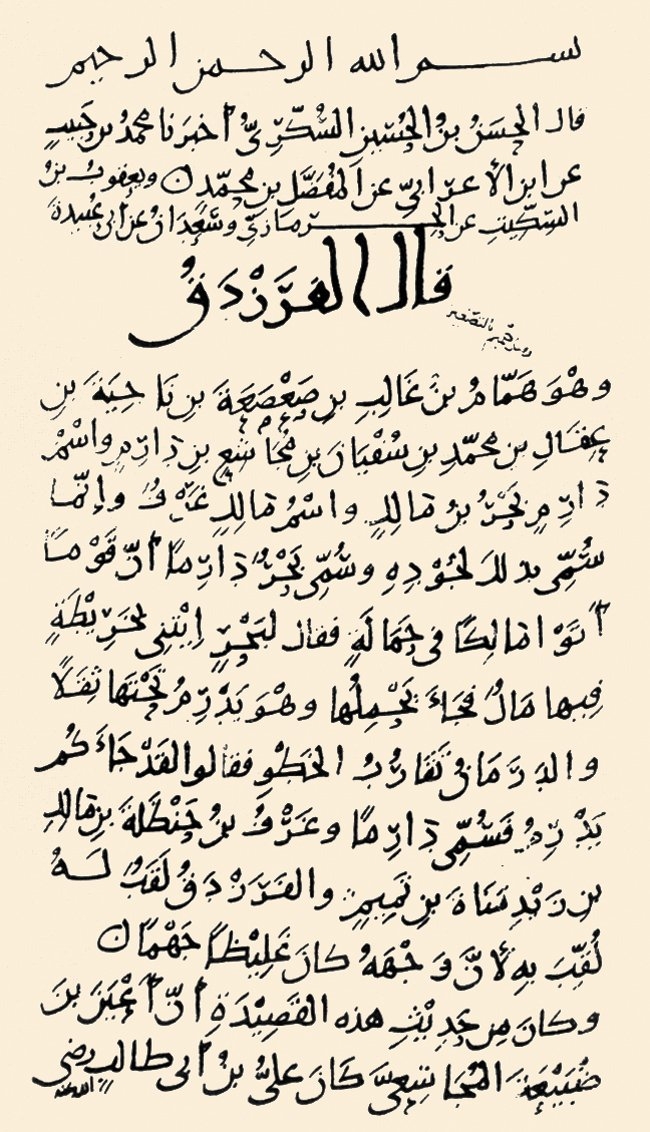 بسم الله الرحمن الرحيم
قال الحَسَنُ بنُ الحُسَينِ السُّكَّرِيُّ أخبَرنا محمدُ بنُ حَبيبٍ
عن ابنِ الأعرَابيِّ عن المُفَضَّلِ بنِ محمّدٍ ويعقوبُ بنُ
السِّكِّيتِ عن الحِرمَازيِّ وسَعْدَانُ عن أبي عُبيدةَ
قال الفَرَزْدَقُ
وهْوَ هَمَّامُ بنُ غَالِبِ بنِ صَعْصَعَةَ بنِ نَاجِيَةَ بنِ
عِقَالِ بنِ محمّدِ بنِ سُفْيَانَ بنِ مُجَاشِعِ بنِ دَارِمٍ واسْمُ
دَارِمٍ بَحْرُ بنُ مَالِكٍ واسْمُ مَالِكٍ عَرْفٌ وإنَّمَا
سُمِّيَ بذلكَ لجُودِهِ وسُمِّيَ بَحْرٌ دَارِمًا أنَّ قَوْمًا
أتَوْا مَالِكًا في حَمَالَةٍ فقال لبَحْرٍ اِئْتِنِي بخَرِيطَةٍ
فيها مَالٌ فجَاءَ يَحْمِلُها وهْوَ يَدْرِمُ تَحْتَها ثِقَلًا
والدَّرَمَانُ تَقَارُبُ الخَطْوِ فقالوا لقَدْ جَاءَكُم
يَدْرِمُ فَسُمِّيَ دَارِمًا وعَرْفُ بنُ حَنْظَلَةَ بنِ مَالِكِ
بنِ زَيْدِ مَنَاةَ بنِ تَمِيمٍ والفَرَزْدَقُ لَقَبٌ لَهُ
لُقِّبَ بِهِ لأنَّ وَجْهَهُ كانَ غَلِيظًا جَهْمًا
وكانَ مِن حَدِيثِ هذه القَصِيدَةِ أنَّ أعْيَنَ بنَ
ضُبَيْعَةَ المُجَاشِعِيَّ كَانَ عليُّ بنُ أبي طالبٍ رضي
الله عنه